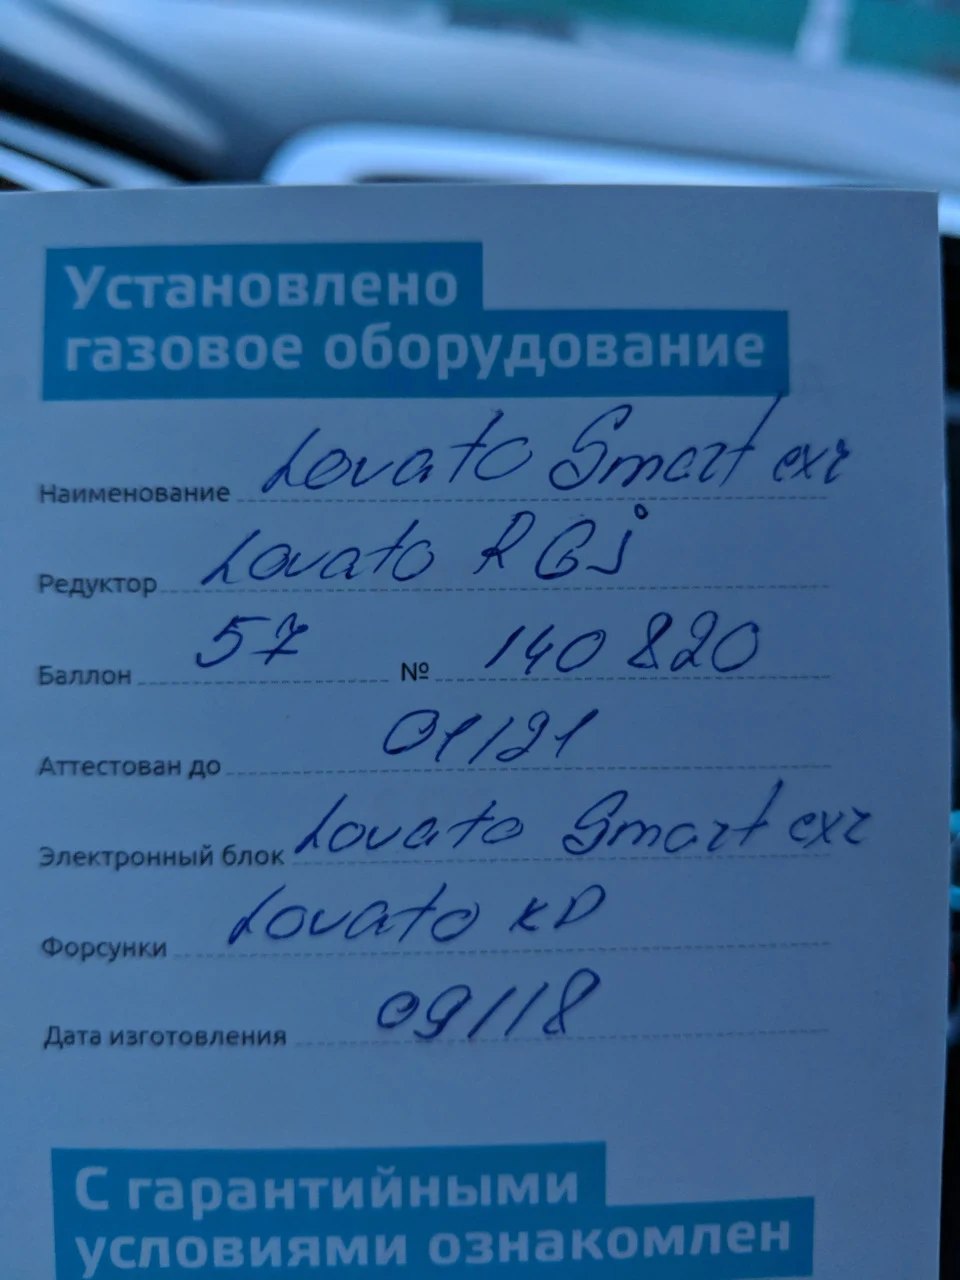 Установлено
газовое оборудование
Наименование Lovato Smart exr
Редуктор Lovato RGj
Баллон 57 № 140820
Аттестован до 01/21
Электронный блок Lovato Smart exr
Форсунки Lovato KP
Дата изготовления 09/18
С гарантийными
условиями ознакомлен